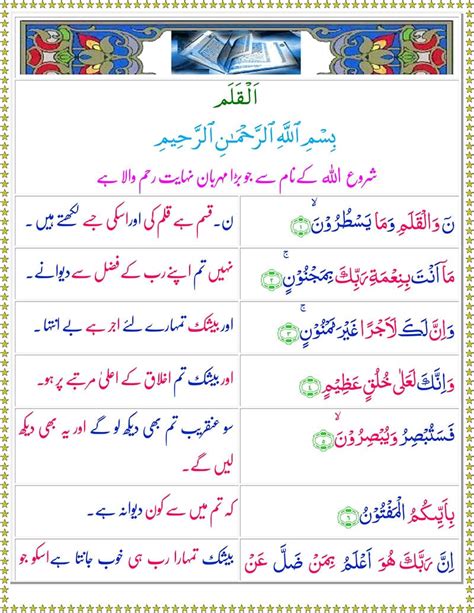 اَلْقَلَم
بِسْمِ ٱللَّهِ ٱلرَّحْمَـٰنِ ٱلرَّحِيمِ
شروع اللہ کے نام سے جو بڑا مہربان نہایت رحم والا ہے
نٓ وَالْقَلَمِ وَمَا يَسْطُرُوْنَۙ ﴿۱﴾
ن۔ قسم ہے قلم کی اور اسکی جسے لکھتے ہیں ۔
مَاۤ اَنْتَ بِنِعْمَةِ رَبِّكَ بِمَجْنُوْنٍۚ ﴿۲﴾
نہیں تم اپنے رب کے فضل سے دیوانے۔
وَاِنَّ لَكَ لَاَجْرًا غَيْرَ مَمْنُوْنٍۚ ﴿۳﴾
اور بیشک تمہارے لئے اجر ہے بے انتہا ۔
وَاِنَّكَ لَعَلٰى خُلُقٍ عَظِيْمٍ ﴿۴﴾
اور بیشک تم اخلاق کے اعلیٰ مرتبے پر ہو۔
فَسَتُبْصِرُ وَيُبْصِرُوْنَۙ ﴿۵﴾
سو عنقریب تم بھی دیکھ لو گے اور یہ بھی دیکھ
لیں گے۔
بِاَيِّٮكُمُ الْمَفْتُوْنُ ﴿۶﴾
کہ تم میں سے کون دیوانہ ہے۔
اِنَّ رَبَّكَ هُوَ اَعْلَمُ بِمَنْ ضَلَّ عَنْ
بیشک تمہارا رب ہی خوب جانتا ہے اسکو جو